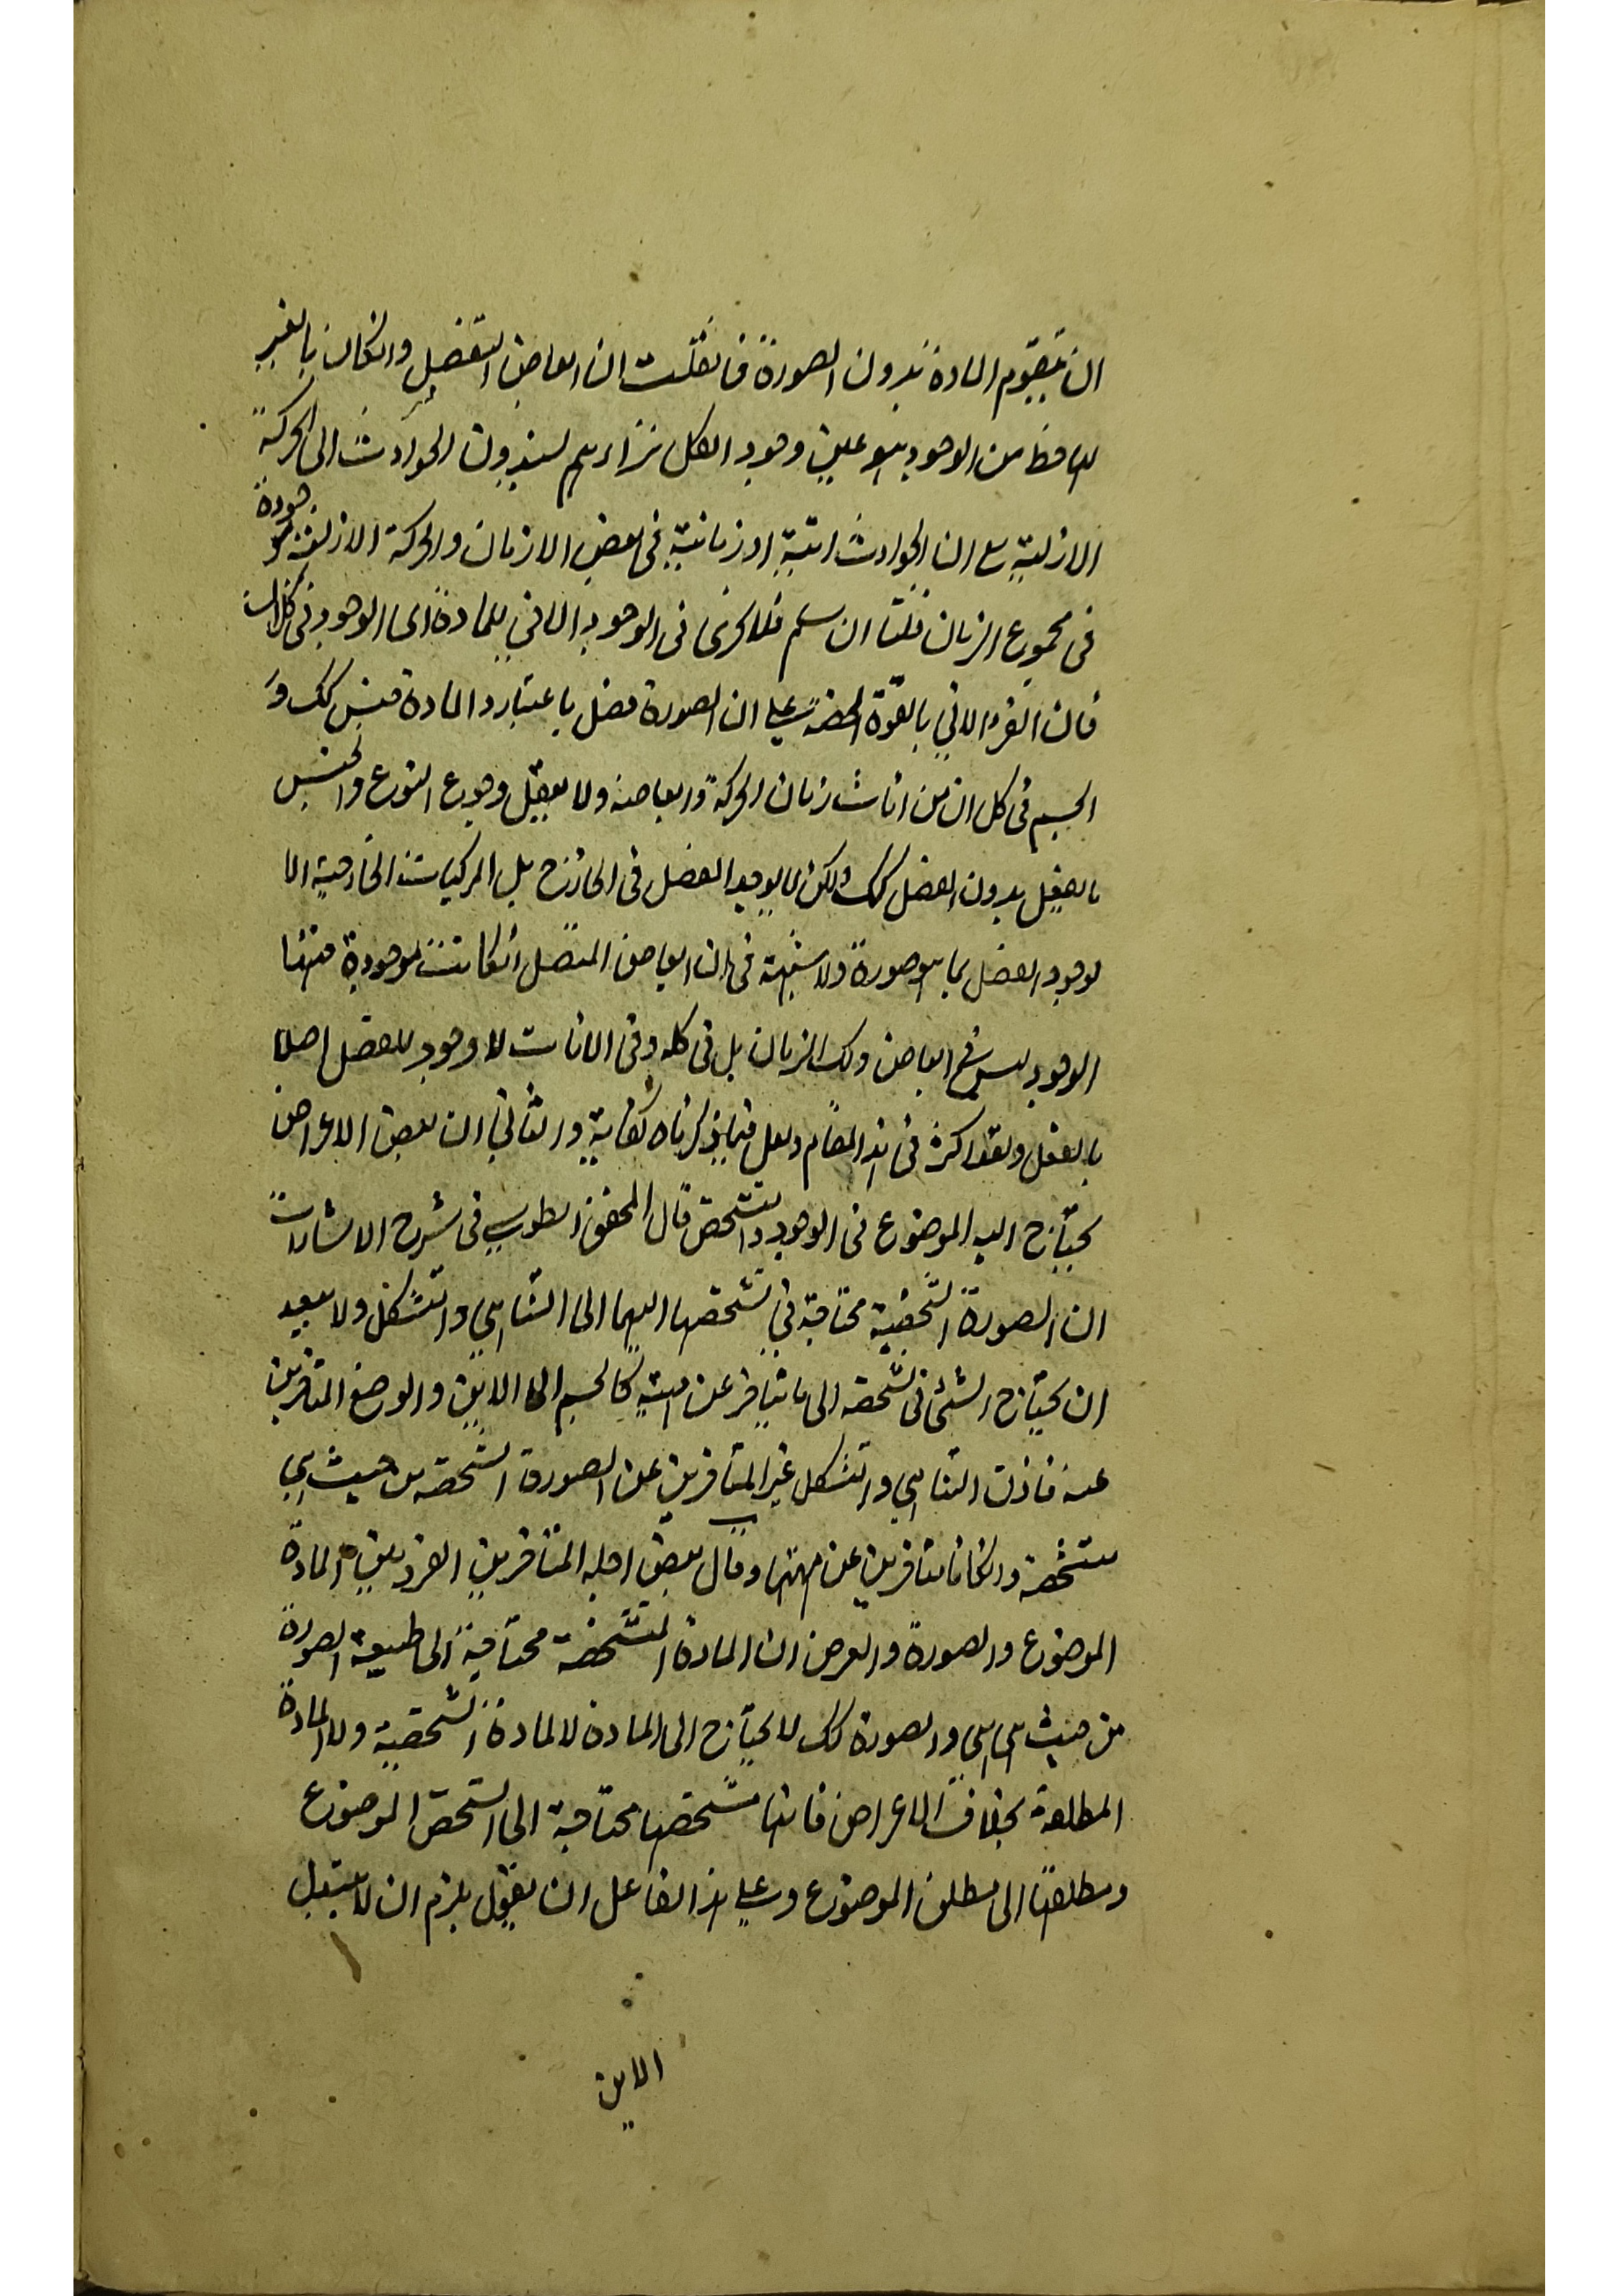 ان يتقوم المادة بدون الصورة فانقلت ان ابعاض المتصل وانكان بالغير
لها حظ من الوجود هو عين وجود الكل نراهم يسندون الحوادث الى الحركة
الازلية مع ان الحوادث انية او زمانية فى بعض الازمان والحركة الازلية موجودة
فى مجموع الزمان قلنا ان سلم فلا يجرى فى الوجود الانى للمادة اى الوجود فى كل ان
فان الفرد الانى بالقوة المحضة على ان الصورة فصل باعتبار والمادة جنس كك و
الجسم فى كل ان من انات زمان الحركة وابعاضه ولا يعقل وجود النوع والجنس
بالفعل بدون الفصل كك ولكن لا يوجد الفصل فى الخارج بل المركبات الخارجية الا
لوجود الفصل بما هو صورة ولا شبهة فى ان ابعاض المتصل انكانت موجودة فهذا
الوجود ليس فى ابعاض ذلك الزمان بل فى كله وفى الانات لا وجود للفصل اصلا
بالفعل وبقى اكثر فى هذا المقام ولعل فيما ذكرناه كفاية والثانى ان بعض الاعراض
يحتاج اليه الموضوع فى الوجود والتشخص قال المحقق الطوسى فى شرح الاشارات
ان الصورة الشخصية محتاجة فى تشخصها اليهما الى التناهى والتشكل ولا يبعد
ان يحتاج الشئ فى تشخصه الى ما يتاخر عن مهيته كالجسم الى الاين والوضع المتاخرين
عنه فاذن التناهى والتشكل غير المتاخرين عن الصورة المتشخصه من حيث هى
متشخصة وانكانا متاخرين عن مهيتها وقال بعض اجلة المتاخرين الفرق بين المادة
الموضوع والصورة والعرض ان المادة المتشخصة محتاجة الى طبيعة الصورة
من حيث هى هى والصورة كك لا يحتاج الى المادة لا المادة الشخصية ولا المادة
المطلقة بخلاف الاعراض فانها متشخصها محتاجة الى الشخص الموضوع
ومطلقها الى مطلق الموضوع وعلى هذا لقائل ان يقول يلزم ان لا يتبدل
الاين